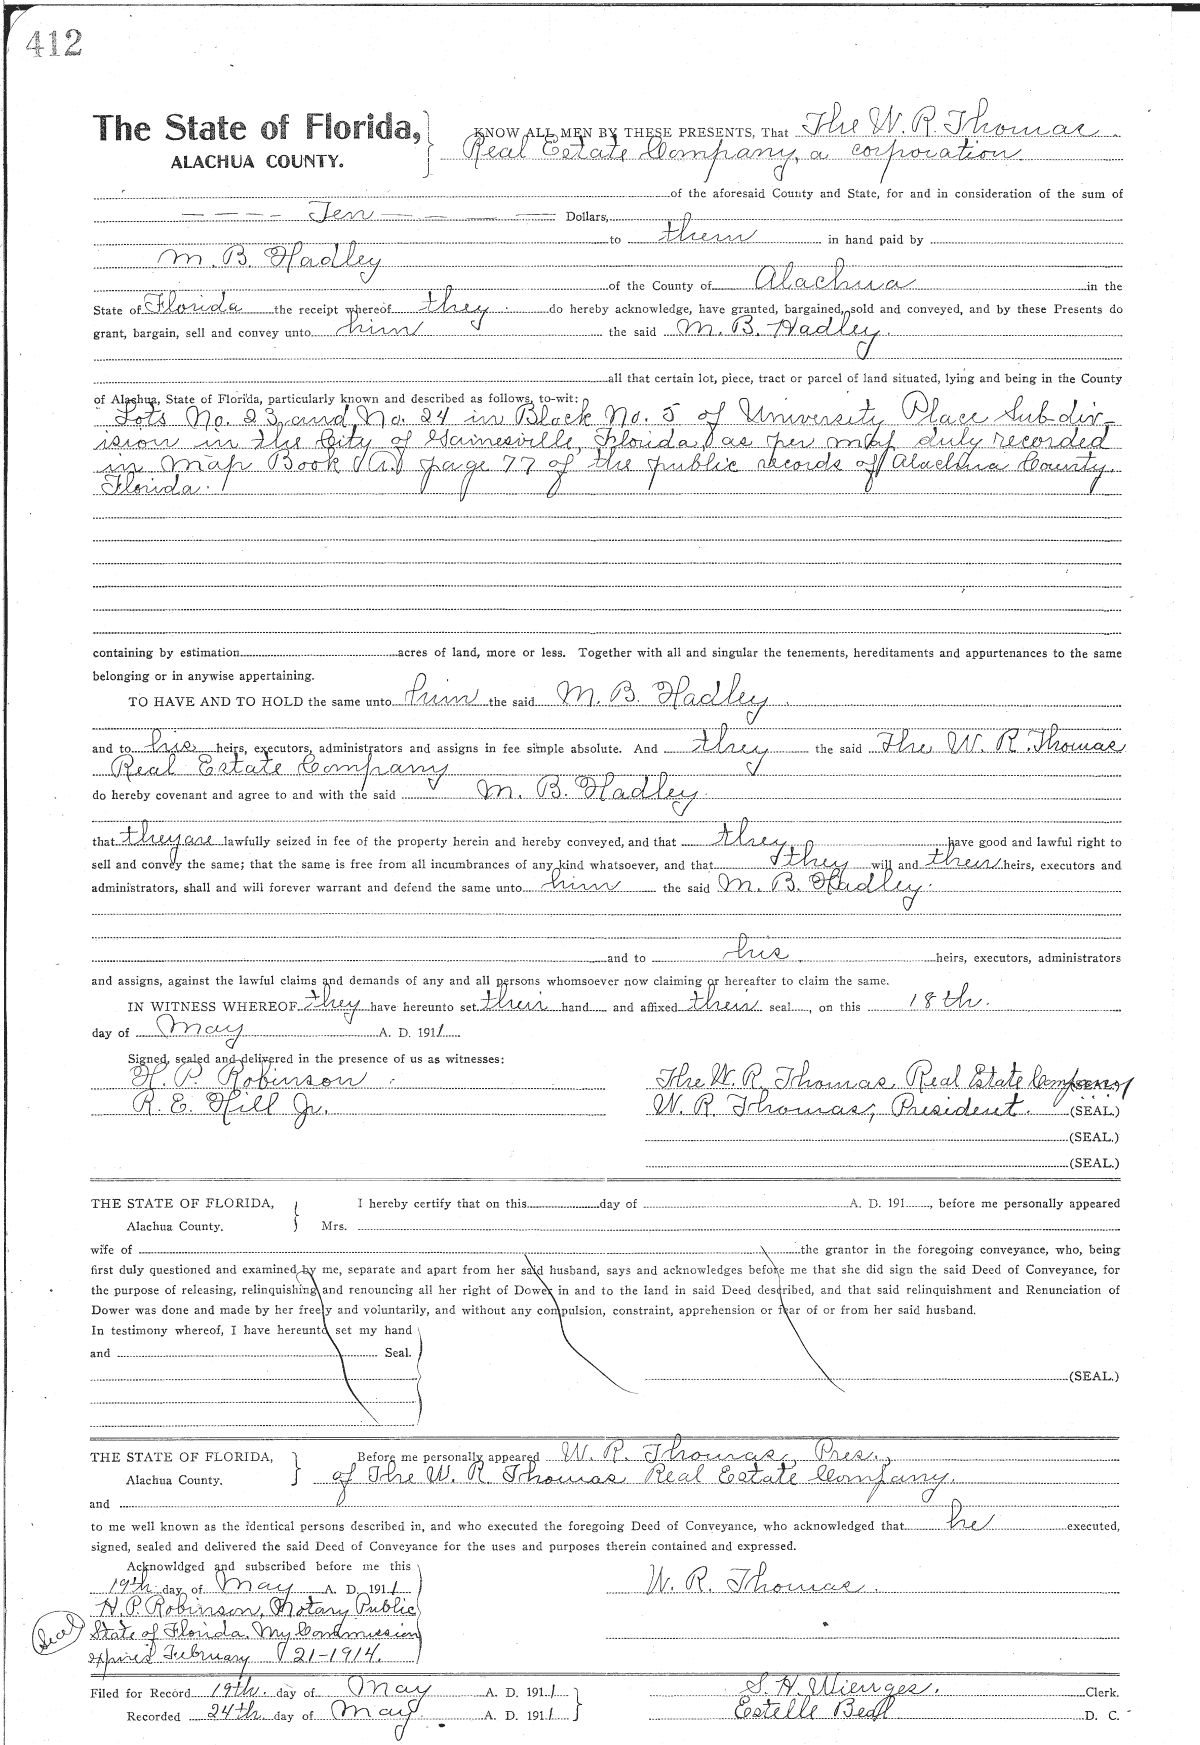 412
The State of Florida, KNOW ALL MEN BY THESE PRESENTS, That The W. R. Thomas
ALACHUA COUNTY. Real Estate Company, a corporation.
of the aforesaid County and State, for and in consideration of the sum of
– – – – Ten – – — — Dollars,
to them in hand paid by
M. B. Hadley
of the County of Alachua in the
State of Florida the receipt whereof they do hereby acknowledge, have granted, bargained, sold and conveyed, and by these Presents do
grant, bargain, sell and convey unto him the said M. B. Hadley.
all that certain lot, piece, tract or parcel of land situated, lying and being in the County
of Alachua, State of Florida, particularly known and described as follows, to-wit:
Lots No. 23 and No. 24 in Block No. 5 of University Place Sub-div-
ision in the City of Gainesville, Florida, as per map duly recorded
in Map Book (A) page 77 of the public records of Alachua County.
Florida.
containing by estimation acres of land, more or less. Together with all and singular the tenements, hereditaments and appurtenances to the same
belonging or in anywise appertaining.
TO HAVE AND TO HOLD the same unto him the said M. B. Hadley.
and to his heirs, executors, administrators and assigns in fee simple absolute. And they the said The W. R. Thomas
Real Estate Company
do hereby covenant and agree to and with the said M. B. Hadley.
that they are lawfully seized in fee of the property herein and hereby conveyed, and that they have good and lawful right to
sell and convey the same; that the same is free from all incumbrances of any kind whatsoever, and that they will and their heirs, executors and
administrators, shall and will forever warrant and defend the same unto him the said M. B. Hadley.
and to his heirs, executors, administrators
and assigns, against the lawful claims and demands of any and all persons whomsoever now claiming or hereafter to claim the same.
IN WITNESS WHEREOF they have hereunto set their hand and affixed their seal, on this 18th.
day of May A. D. 1911
Signed, sealed and delivered in the presence of us as witnesses:
H. P. Robinson. The W. R. Thomas Real Estate Company (SEAL.)
R. E. Hill Jr. W. R. Thomas, President. (SEAL.)
(SEAL.)
(SEAL.)
THE STATE OF FLORIDA, I hereby certify that on this day of A. D. 191, before me personally appeared
Alachua County. Mrs.
wife of the grantor in the foregoing conveyance, who, being
first duly questioned and examined by me, separate and apart from her said husband, says and acknowledges before me that she did sign the said Deed of Conveyance, for
the purpose of releasing, relinquishing and renouncing all her right of Dower in and to the land in said Deed described, and that said relinquishment and Renunciation of
Dower was done and made by her freely and voluntarily, and without any compulsion, constraint, apprehension or fear of or from her said husband.
In testimony whereof, I have hereunto set my hand
and Seal.
(SEAL.)
THE STATE OF FLORIDA, Before me personally appeared W. R. Thomas, Pres.,
Alachua County. of The W. R. Thomas Real Estate Company.
and
to me well known as the identical persons described in, and who executed the foregoing Deed of Conveyance, who acknowledged that he executed,
signed, sealed and delivered the said Deed of Conveyance for the uses and purposes therein contained and expressed.
Acknowldged and subscribed before me this
19th. day of May A. D. 1911 W. R. Thomas.
H. P. Robinson, Notary Public
(Seal) State of Florida. My Commission
expires February 21-1914.
Filed for Record 19th. day of May A. D. 1911 S. H. Wienges. Clerk.
Recorded 24th day of May A. D. 1911 Estelle Beall D. C.